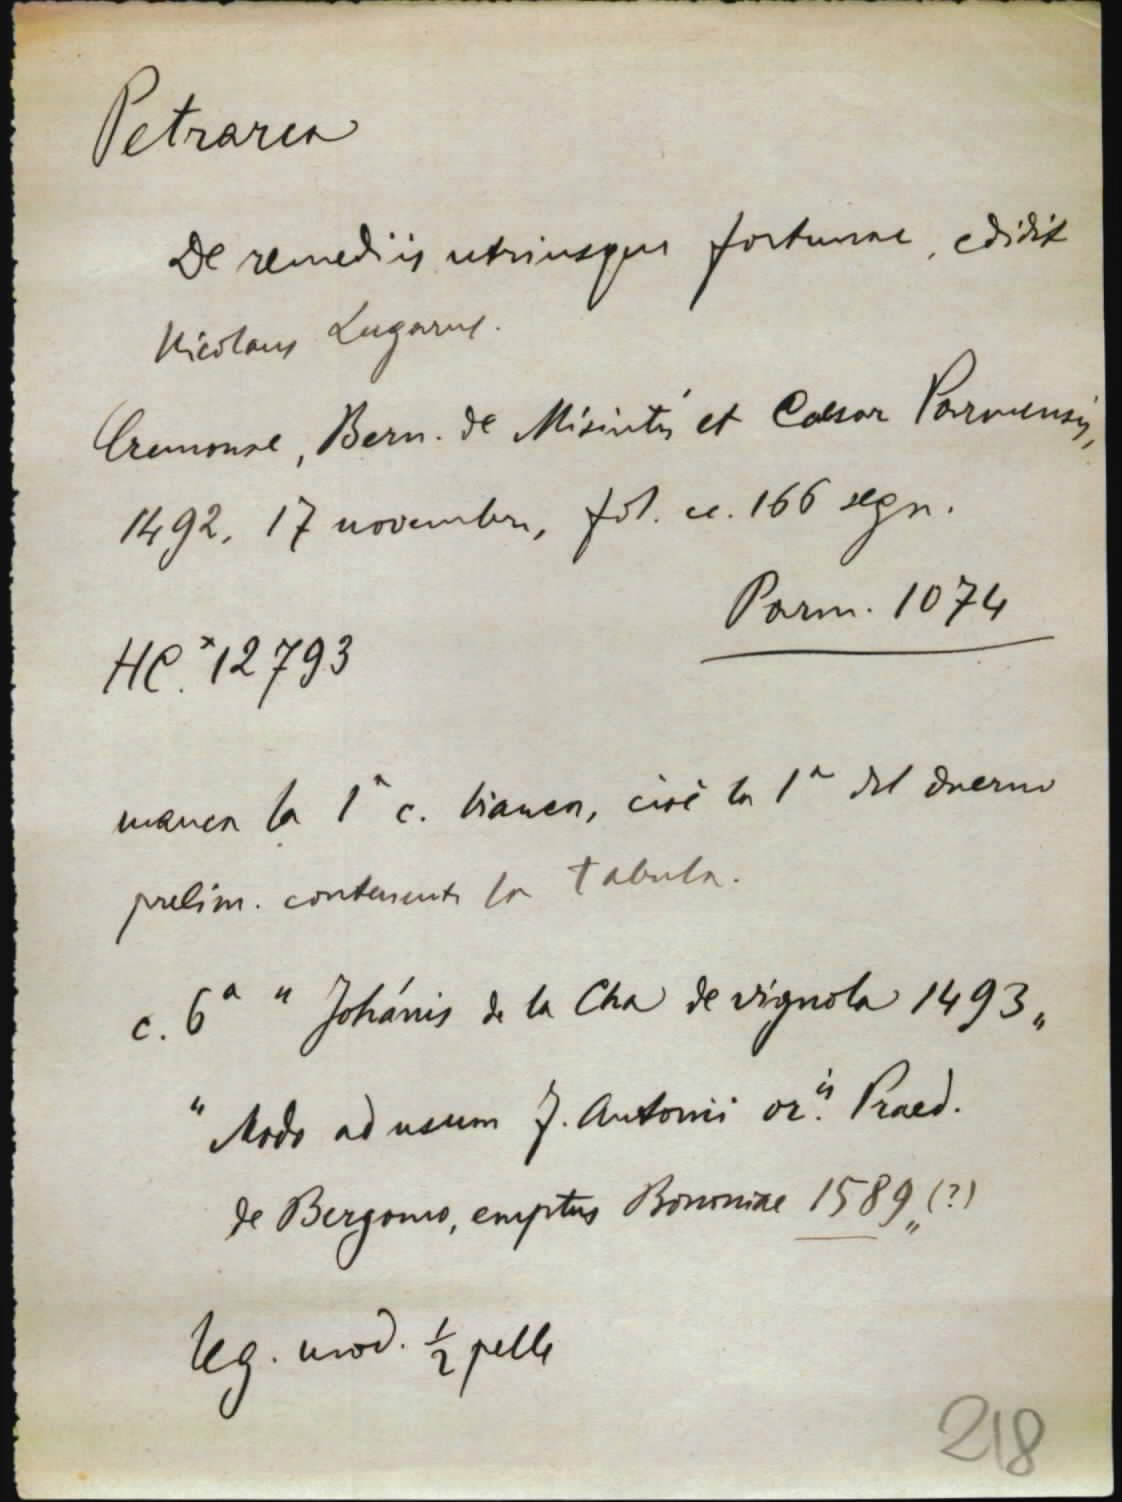 Petrarca
De remediis utriusque fortunae, edidit
Nicolaus Lugarus.
Cremonae, Bern. de Misintis et Caesar Parmensis,
1492, 17 novembre, fol. cc. 166 segn.
Parm. 1074
HC.*12793
manca la 1ª c. bianca, cioè la 1ª del duerno
prelim. contenente la tabula.
c. 6ª " Johánis de la Cha de vignola 1493 "
" Modo ad usum f. Antonii or.is Praed.
de Bergomo, emptus Bononiae 1589 " (?)
leg. mod. ½ pelle
218